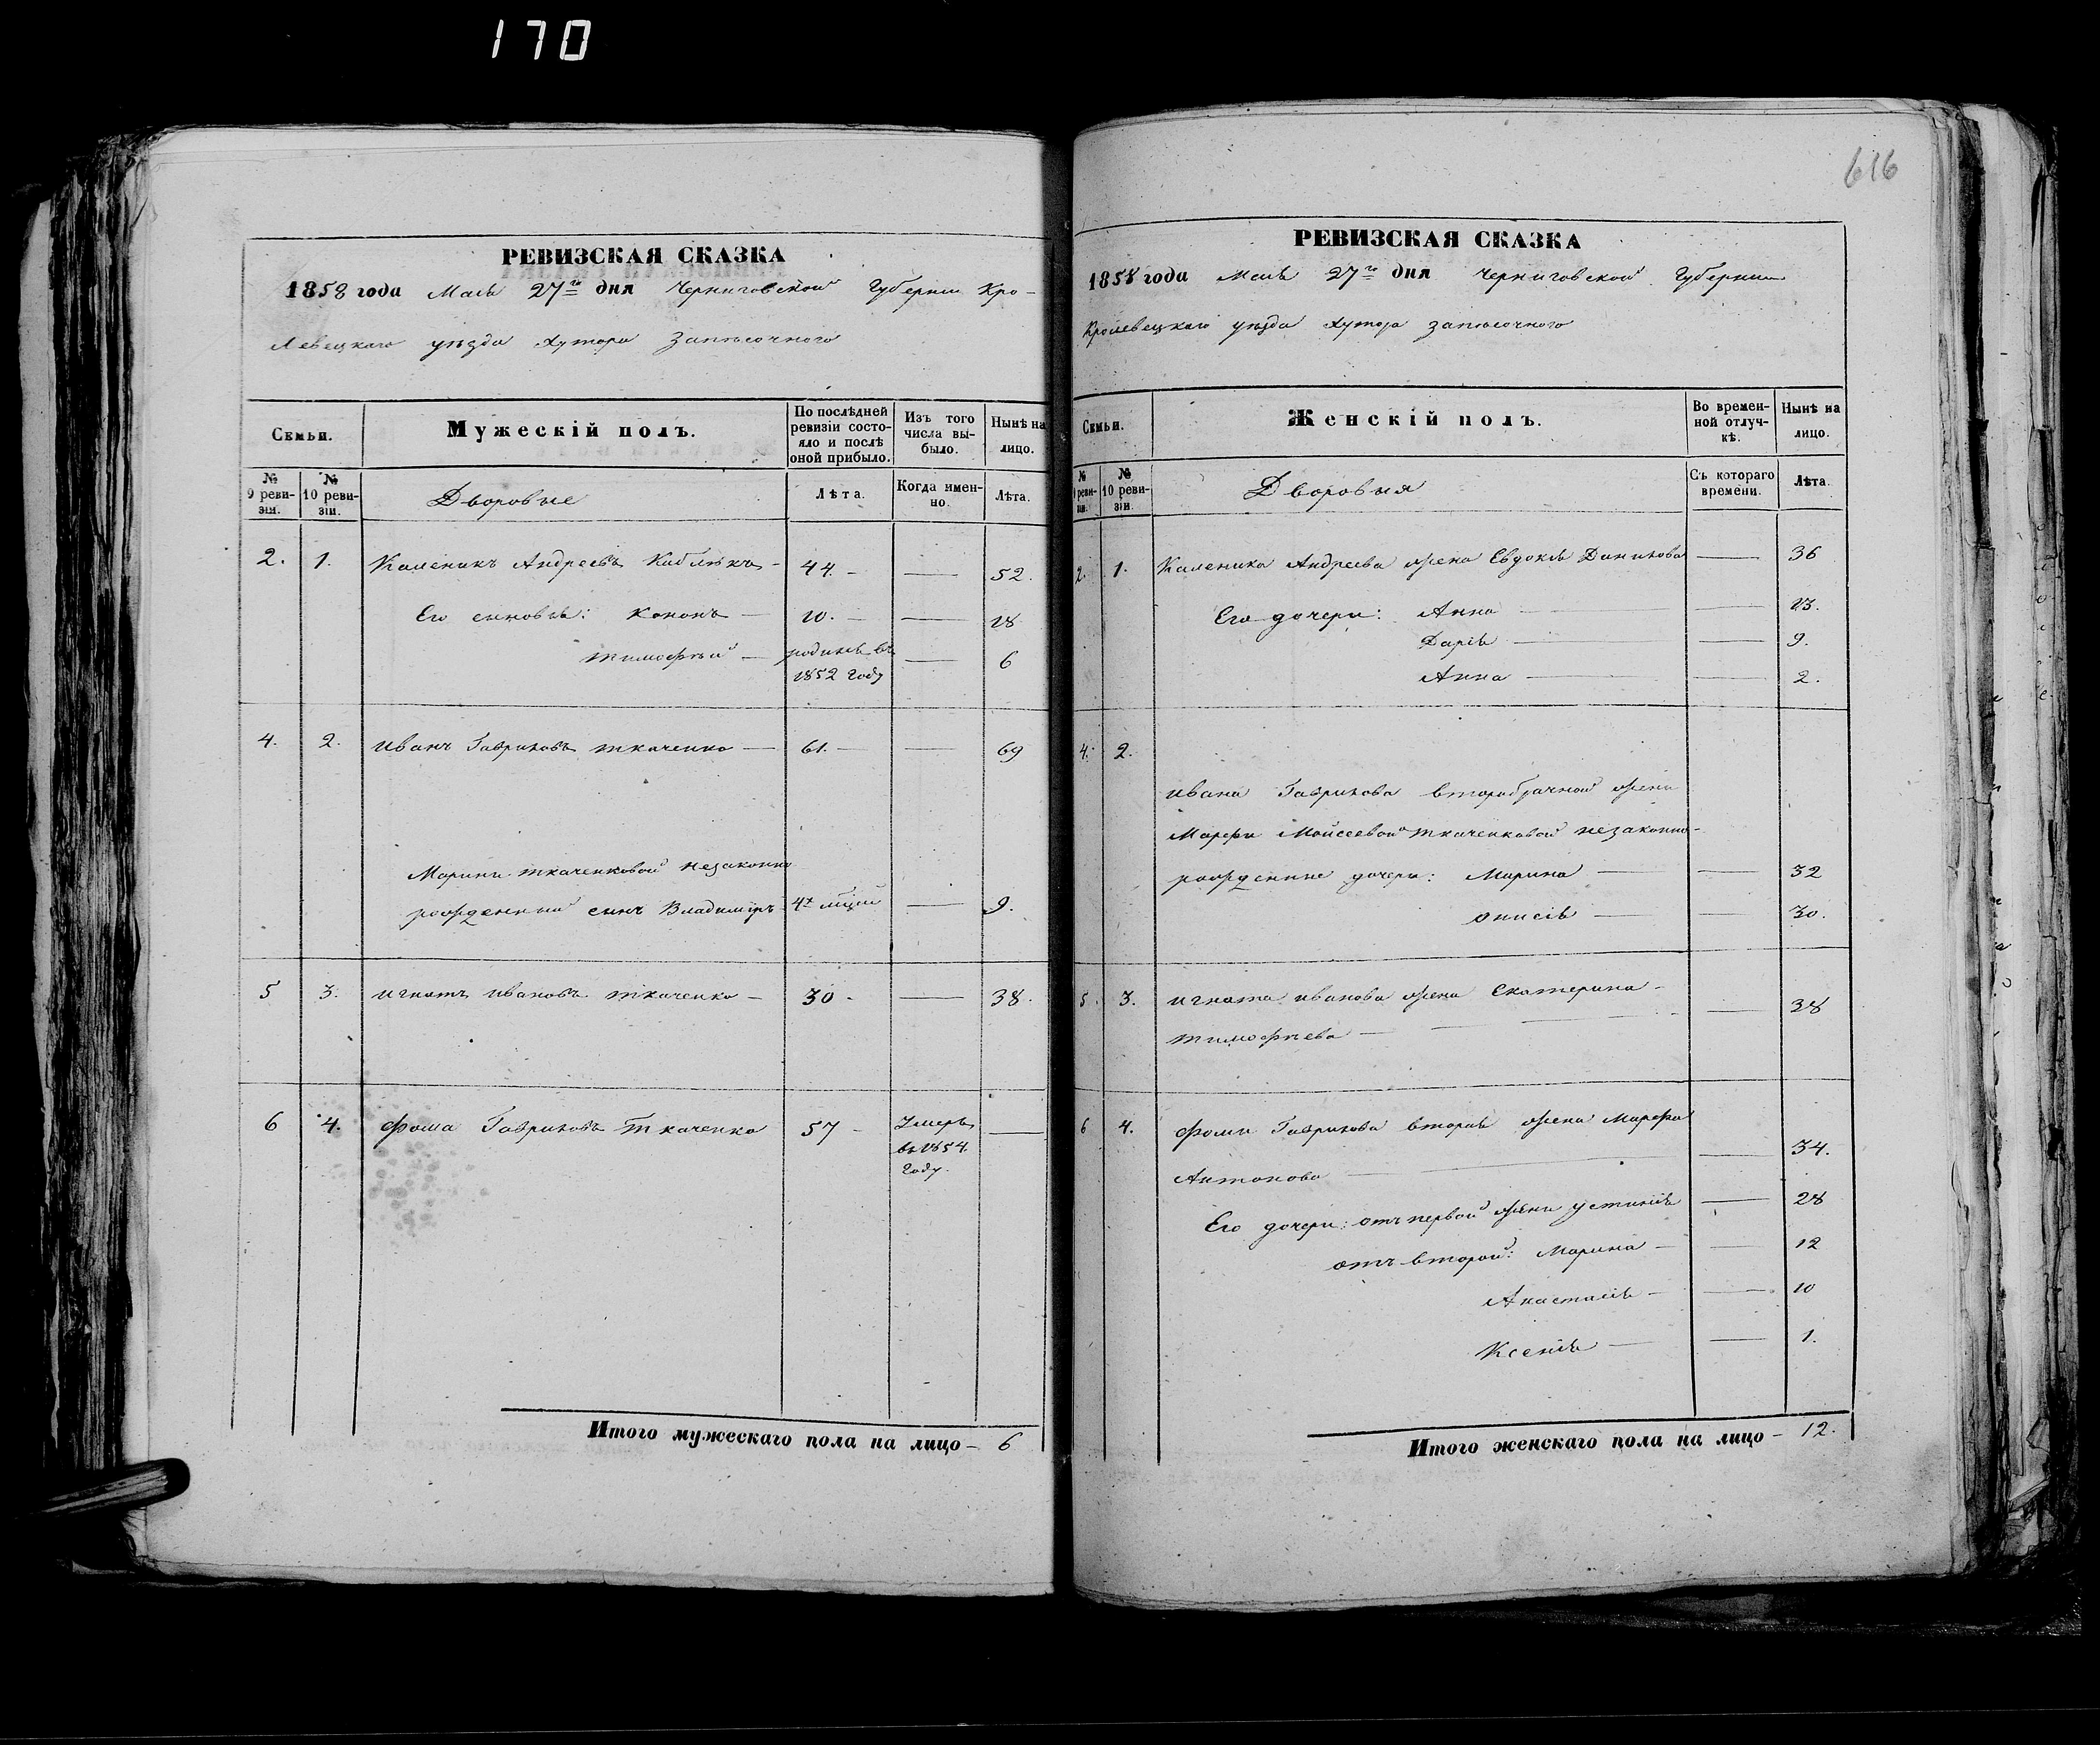 170
РЕВИЗСКАЯ СКАЗКА
1858 года Мая 27го дня Черниговской Губернии Кро-
левецкаго уѣзда Хутора Запѣсочного
Семьи.
Мужескій полъ.
По послѣдней ревизіи состо-яло и послѣ оной прибыло.
Изъ того числа вы-было.
Нынѣ на лицо.
№ 9 реви-зіи.
№ 10 реви-зіи.
Дворовые
Лѣта.
Когда имен-но.
Лѣта.
2. 1. Каленикъ Андреевъ 44. — 52.
Его сыновья: Кононъ — 10. — 18
Тимофѣй — родился въ 6
1852 году
4. 2. Иванъ Гавриловъ Ткаченко — 61. — 69
Марины Ткаченковой незаконно
рожденный сынъ Владиміръ 4х мѣсяц — 9.
5 3. Игнатъ Ивановъ Ткаченко — 30 — 38.
6 4. Фома Гавриловъ Ткаченко 57 — Умеръ —
въ 1854
году.
Итого мужескаго пола на лицо — 6
616
РЕВИЗСКАЯ СКАЗКА
1858 года Мая 27го дня Черниговской Губернии
Кролевецкаго уѣзда Хутора Запѣсочного
Семьи.
Женскій полъ.
Во времен-ной отлуч-кѣ.
Нынѣ на лицо.
№ 9 реви-зіи.
№ 10 реви-зіи.
Дворовыя
Съ котораго времени.
Лѣта.
2. 1. Каленика Андреева жена Евдокія Данилова — 36
Его дочери: Анна — 13.
Дарія — 9.
Анна — 2.
4. 2.
Ивана Гаврилова второбрачной жены
Марфы Мойсеевой Ткаченковой незаконно-
рожденные дочери: Марина — 32
Онисія — 30.
5. 3. Игната Иванова жена Екатерина — 38
Тимофѣева —
6 4. Фомы Гаврилова вторая жена Марфа
Антонова — 34.
Его дочери: отъ первой жены Устинія — 28
отъ второй: Марина — 12
Анастасія — 10
Ксенія — 1.
Итого женскаго пола на лицо — 12.